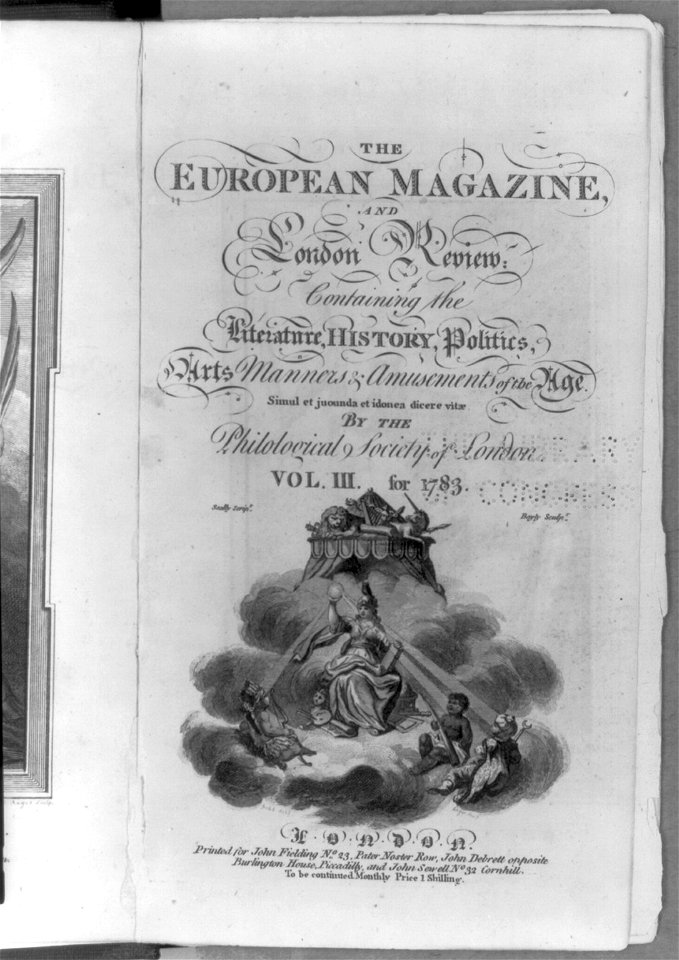 THE
EUROPEAN MAGAZINE,
AND
London Review;
Containing the
Literature, HISTORY, Politics,
Arts Manners & Amusements of the Age.
Simul et jucunda et idonea dicere vitæ
BY THE
Philological Society of London.
VOL. III. for 1783.
Scully Scrip.t
Sculp.t
LONDON.
Printed for John Fielding No. 23, Pater Noster Row, John Debrett opposite
Burlington House, Piccadilly, and John Sewell No. 32 Cornhill.
To be continued Monthly Price 1 Shilling.